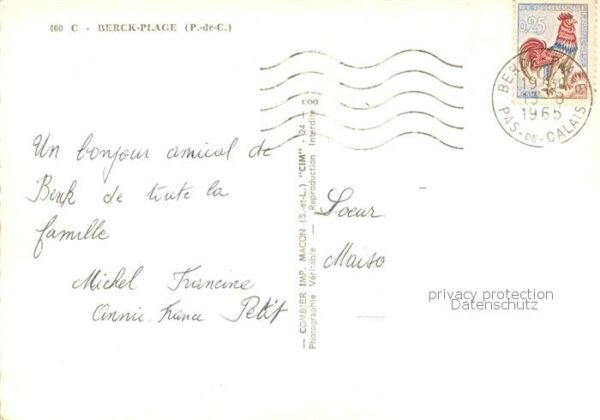 460 C - BERCK-PLAGE (P.-de-C.)
0,25
BERCK
19
1965
PAS-DE-CALAIS
Un bonjour amical de
Berck de toute la
famille
Michel Francine
Annie-France Petit
— COMBIER IMP. MACON (S.-et-L.) "CIM" - 124 - 200
Photographie Véritable - Reproduction Interdite
Soeur
Maiso
privacy protection
Datenschutz